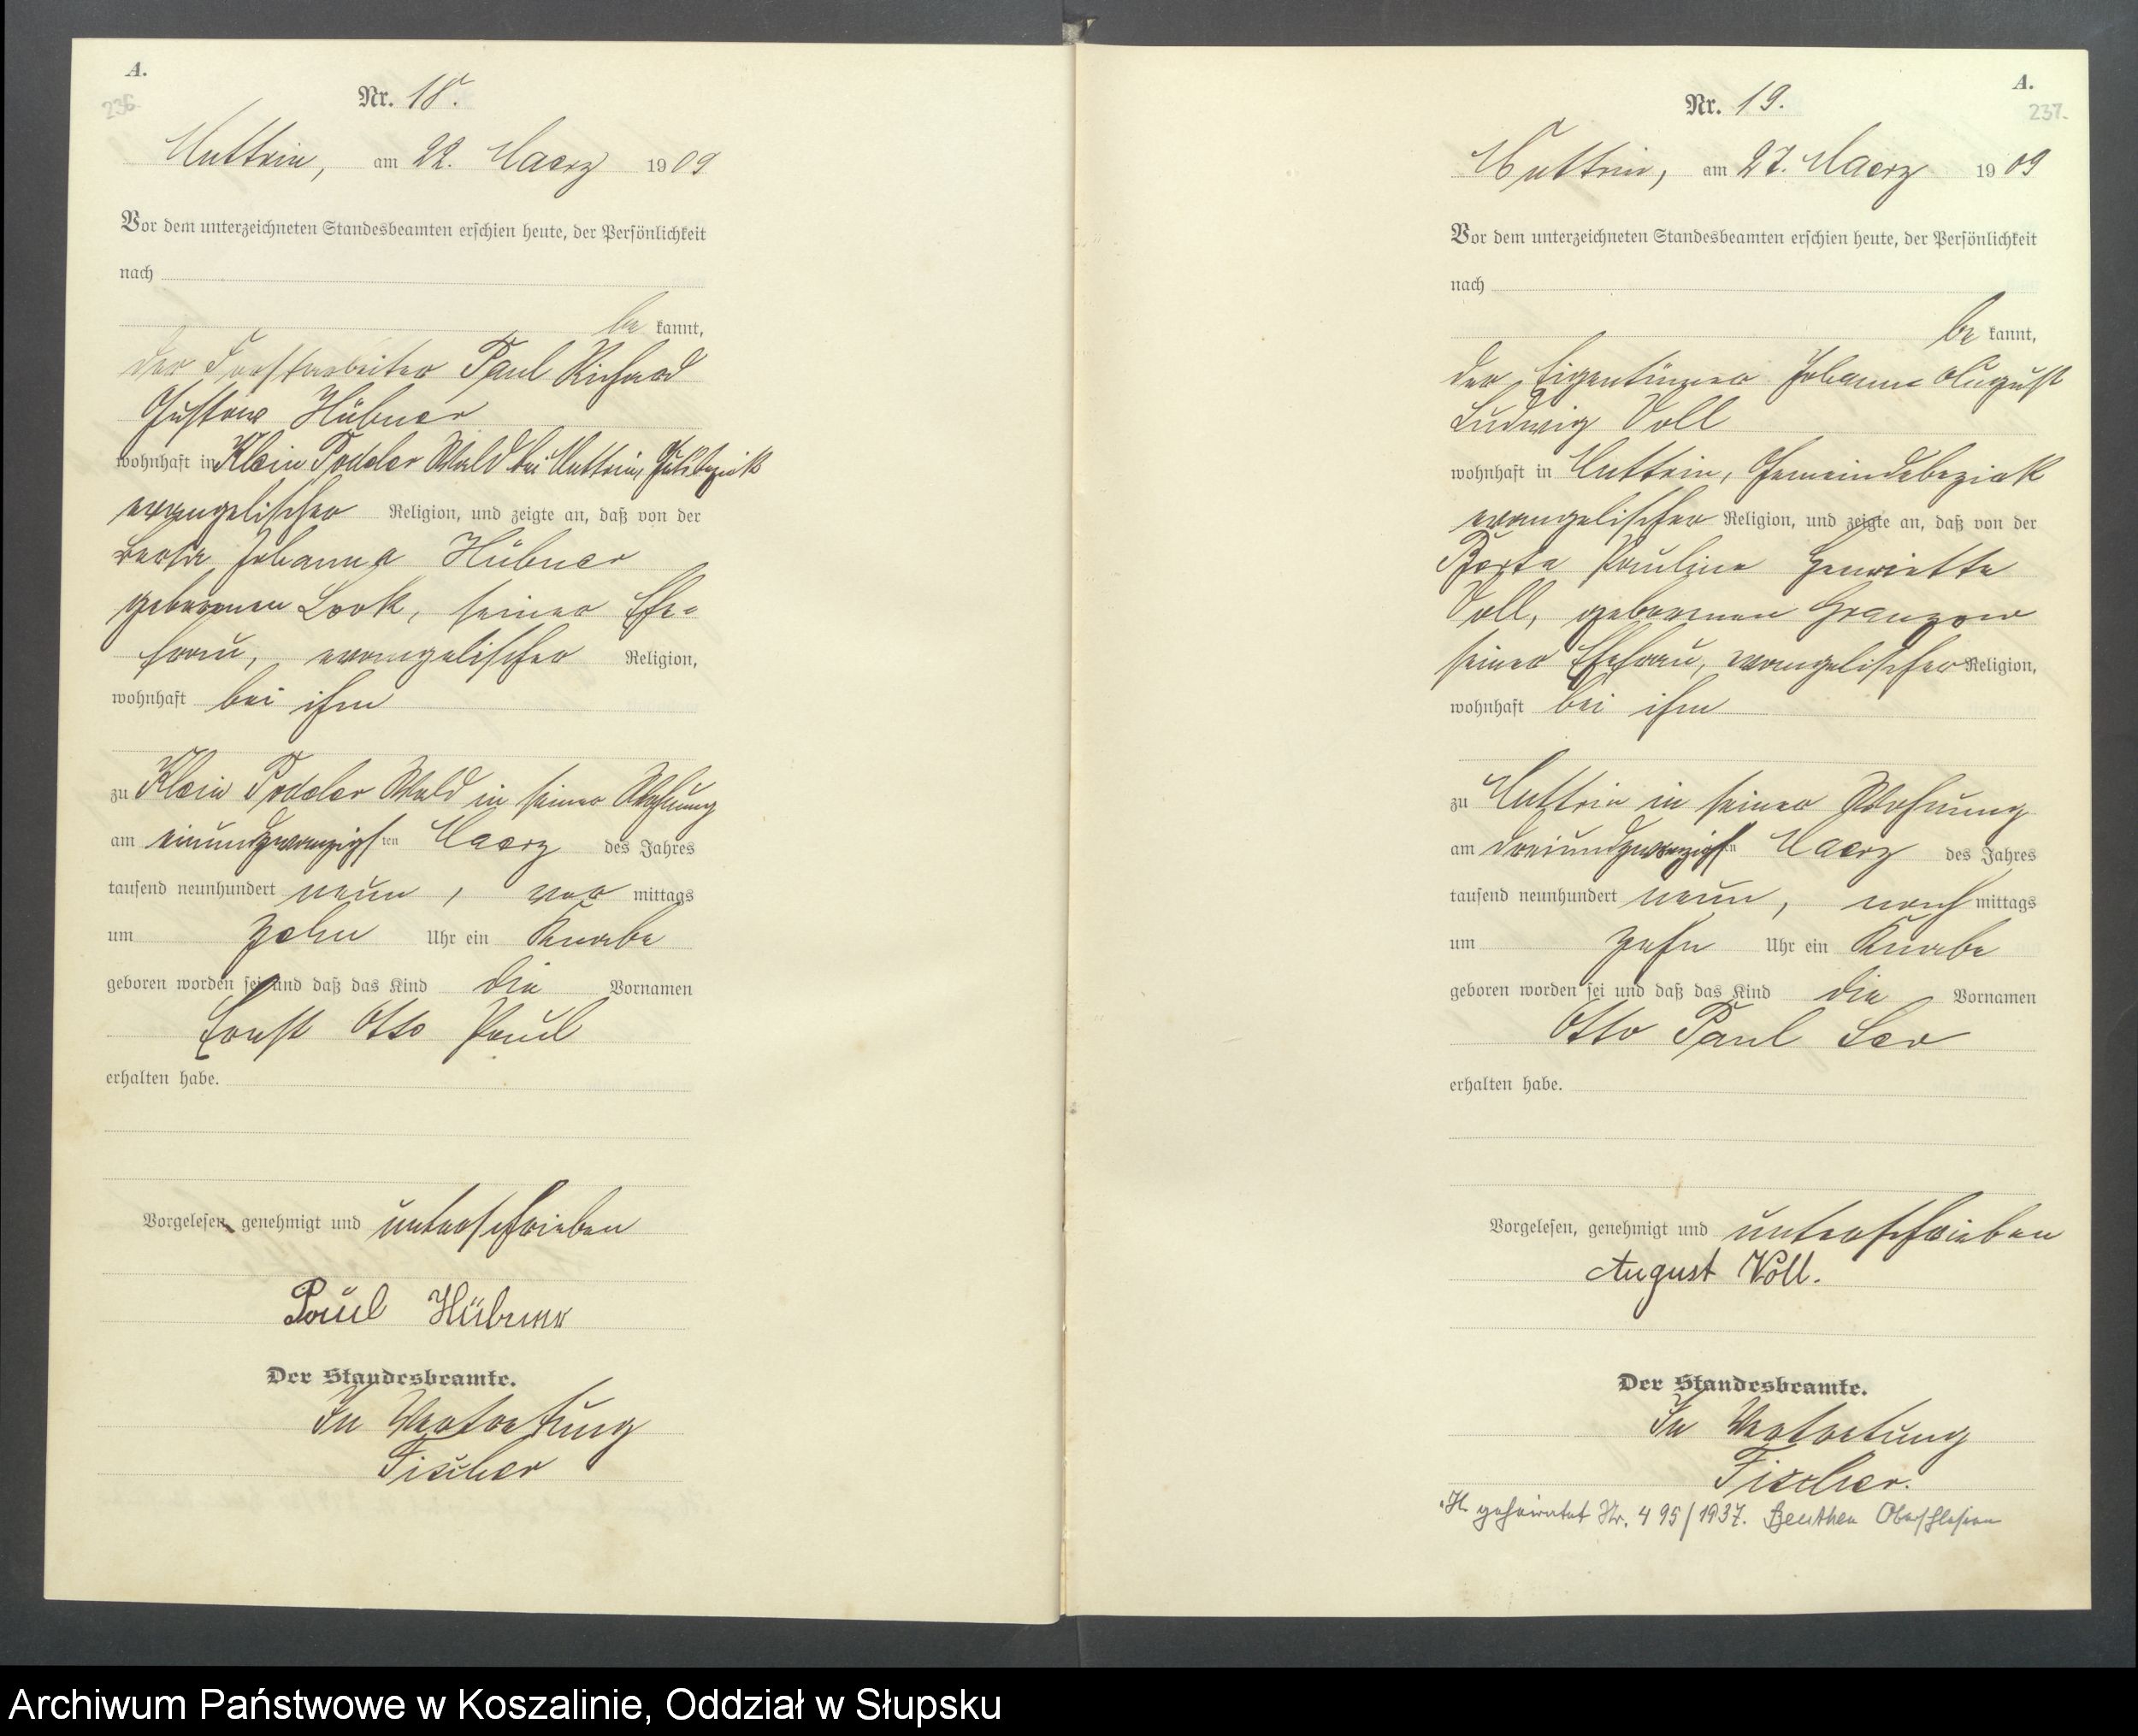 A.
236.
Nr. 18.
Muttrin, am 22. Maerz 1909
Vor dem unterzeichneten Standesbeamten erschien heute, der Persönlichkeit
nach
be kannt,
der Forstarbeiter Paul Richard
Gustav Hübner
wohnhaft in Klein Poddler Wald bei Muttrin, Gutsbezirk
evangelischer Religion, und zeigte an, daß von der
Berta Johanna Hübner
geborenen Look, seiner Ehe-
frau, evangelischer Religion,
wohnhaft bei ihm
zu Klein Poddler Wald in seiner Wohnung
am einundzwanzigsten Maerz des Jahres
tausend neunhundert neun, vor mittags
um zehn Uhr ein Knabe
geboren worden sei und daß das Kind die Vornamen
Ernst Otto Paul
erhalten habe.
Vorgelesen, genehmigt und unterschrieben
Paul Hübner
Der Standesbeamte.
In Vertretung
Fischer
A.
237.
Nr. 19.
Muttrin, am 27. Maerz 1909
Vor dem unterzeichneten Standesbeamten erschien heute, der Persönlichkeit
nach
be kannt,
der Eigentümer Johann August
Ludwig Voll
wohnhaft in Muttrin, Gemeindebezirk
evangelischer Religion, und zeigte an, daß von der
Berta Pauline Henriette
Voll, geborenen Granzow
seiner Ehefrau, evangelischer Religion,
wohnhaft bei ihm
zu Muttrin in seiner Wohnung
am dreiundzwanzigsten Maerz des Jahres
tausend neunhundert neun, nach mittags
um zehn Uhr ein Knabe
geboren worden sei und daß das Kind die Vornamen
Otto Paul Leo
erhalten habe.
Vorgelesen, genehmigt und unterschrieben
August Voll.
Der Standesbeamte.
In Vertretung
Fischer.
geheiratet Nr. 495/1937. Beuthen Oberschlesien
Archiwum Państwowe w Koszalinie, Oddział w Słupsku